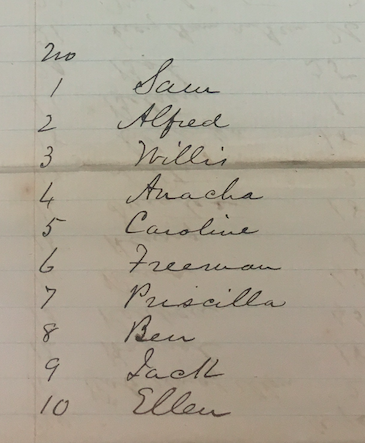 No
1 Sam
2 Alfred
3 Willis
4 Anacha
5 Caroline
6 Freeman
7 Priscilla
8 Ben
9 Jack
10 Ellen